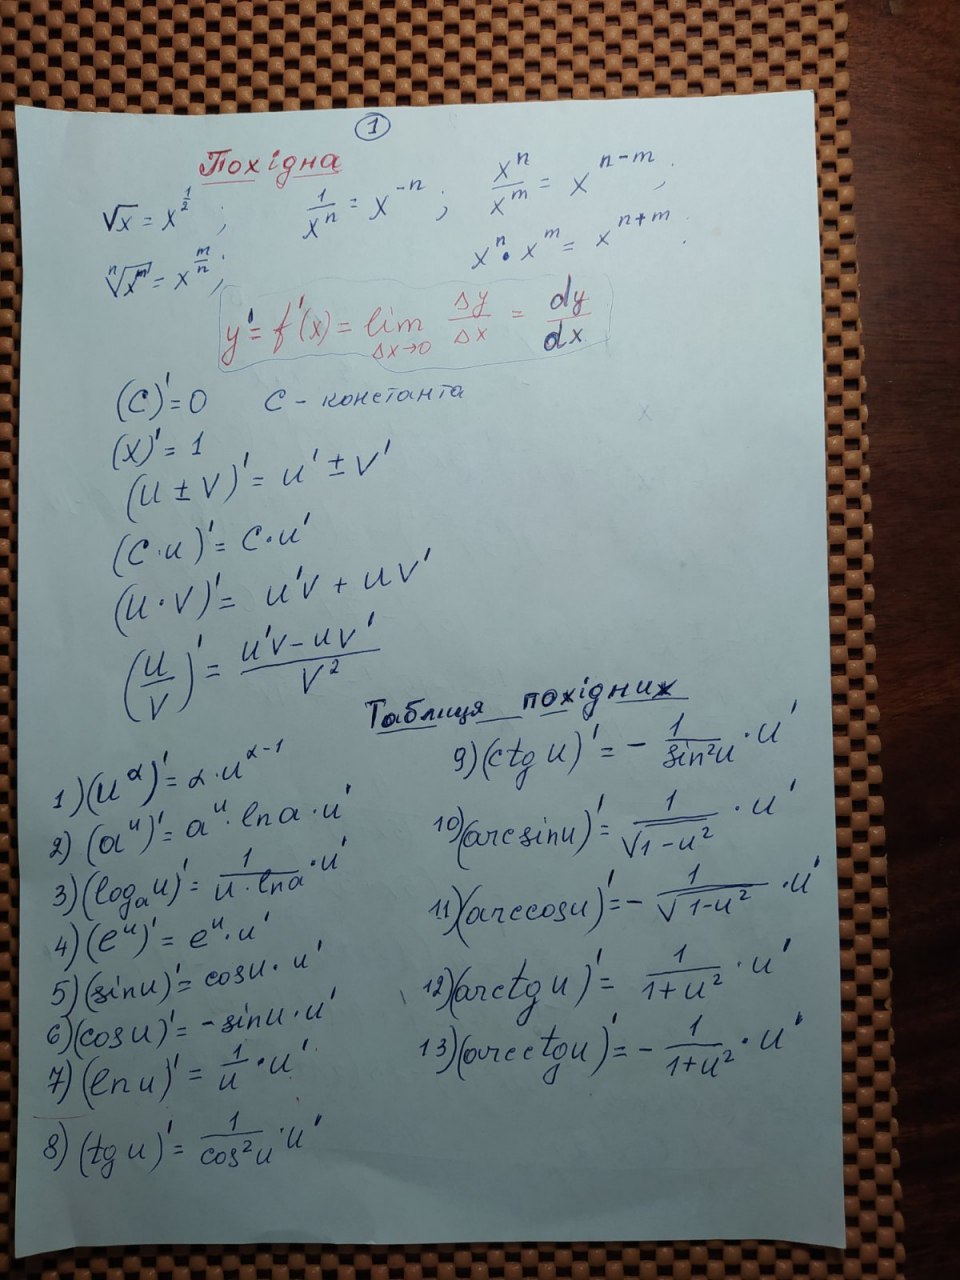 1
Похідна
√x = x^(1/2) ; 1/x^n = x^(-n) ; x^n/x^m = x^(n-m) ;
ⁿ√(x^m) = x^(m/n) ; x^n • x^m = x^(n+m) .
y' = f'(x) = lim Δx→0 Δy/Δx = dy/dx
(C)' = 0 C - константа
(x)' = 1
(u ± v)' = u' ± v'
(C·u)' = C·u'
(u·v)' = u'v + uv'
(u/v)' = (u'v - uv')/v²
Таблиця похідних
1) (u^α)' = α·u^(α-1)
2) (a^u)' = a^u · ln a · u'
3) (log_a u)' = 1/(u·ln a) · u'
4) (e^u)' = e^u · u'
5) (sin u)' = cos u · u'
6) (cos u)' = - sin u · u'
7) (ln u)' = 1/u · u'
8) (tg u)' = 1/cos²u · u'
9) (ctg u)' = - 1/sin²u · u'
10) (arcsin u)' = 1/√(1-u²) · u'
11) (arccos u)' = - 1/√(1-u²) · u'
12) (arctg u)' = 1/(1+u²) · u'
13) (arcctg u)' = - 1/(1+u²) · u'